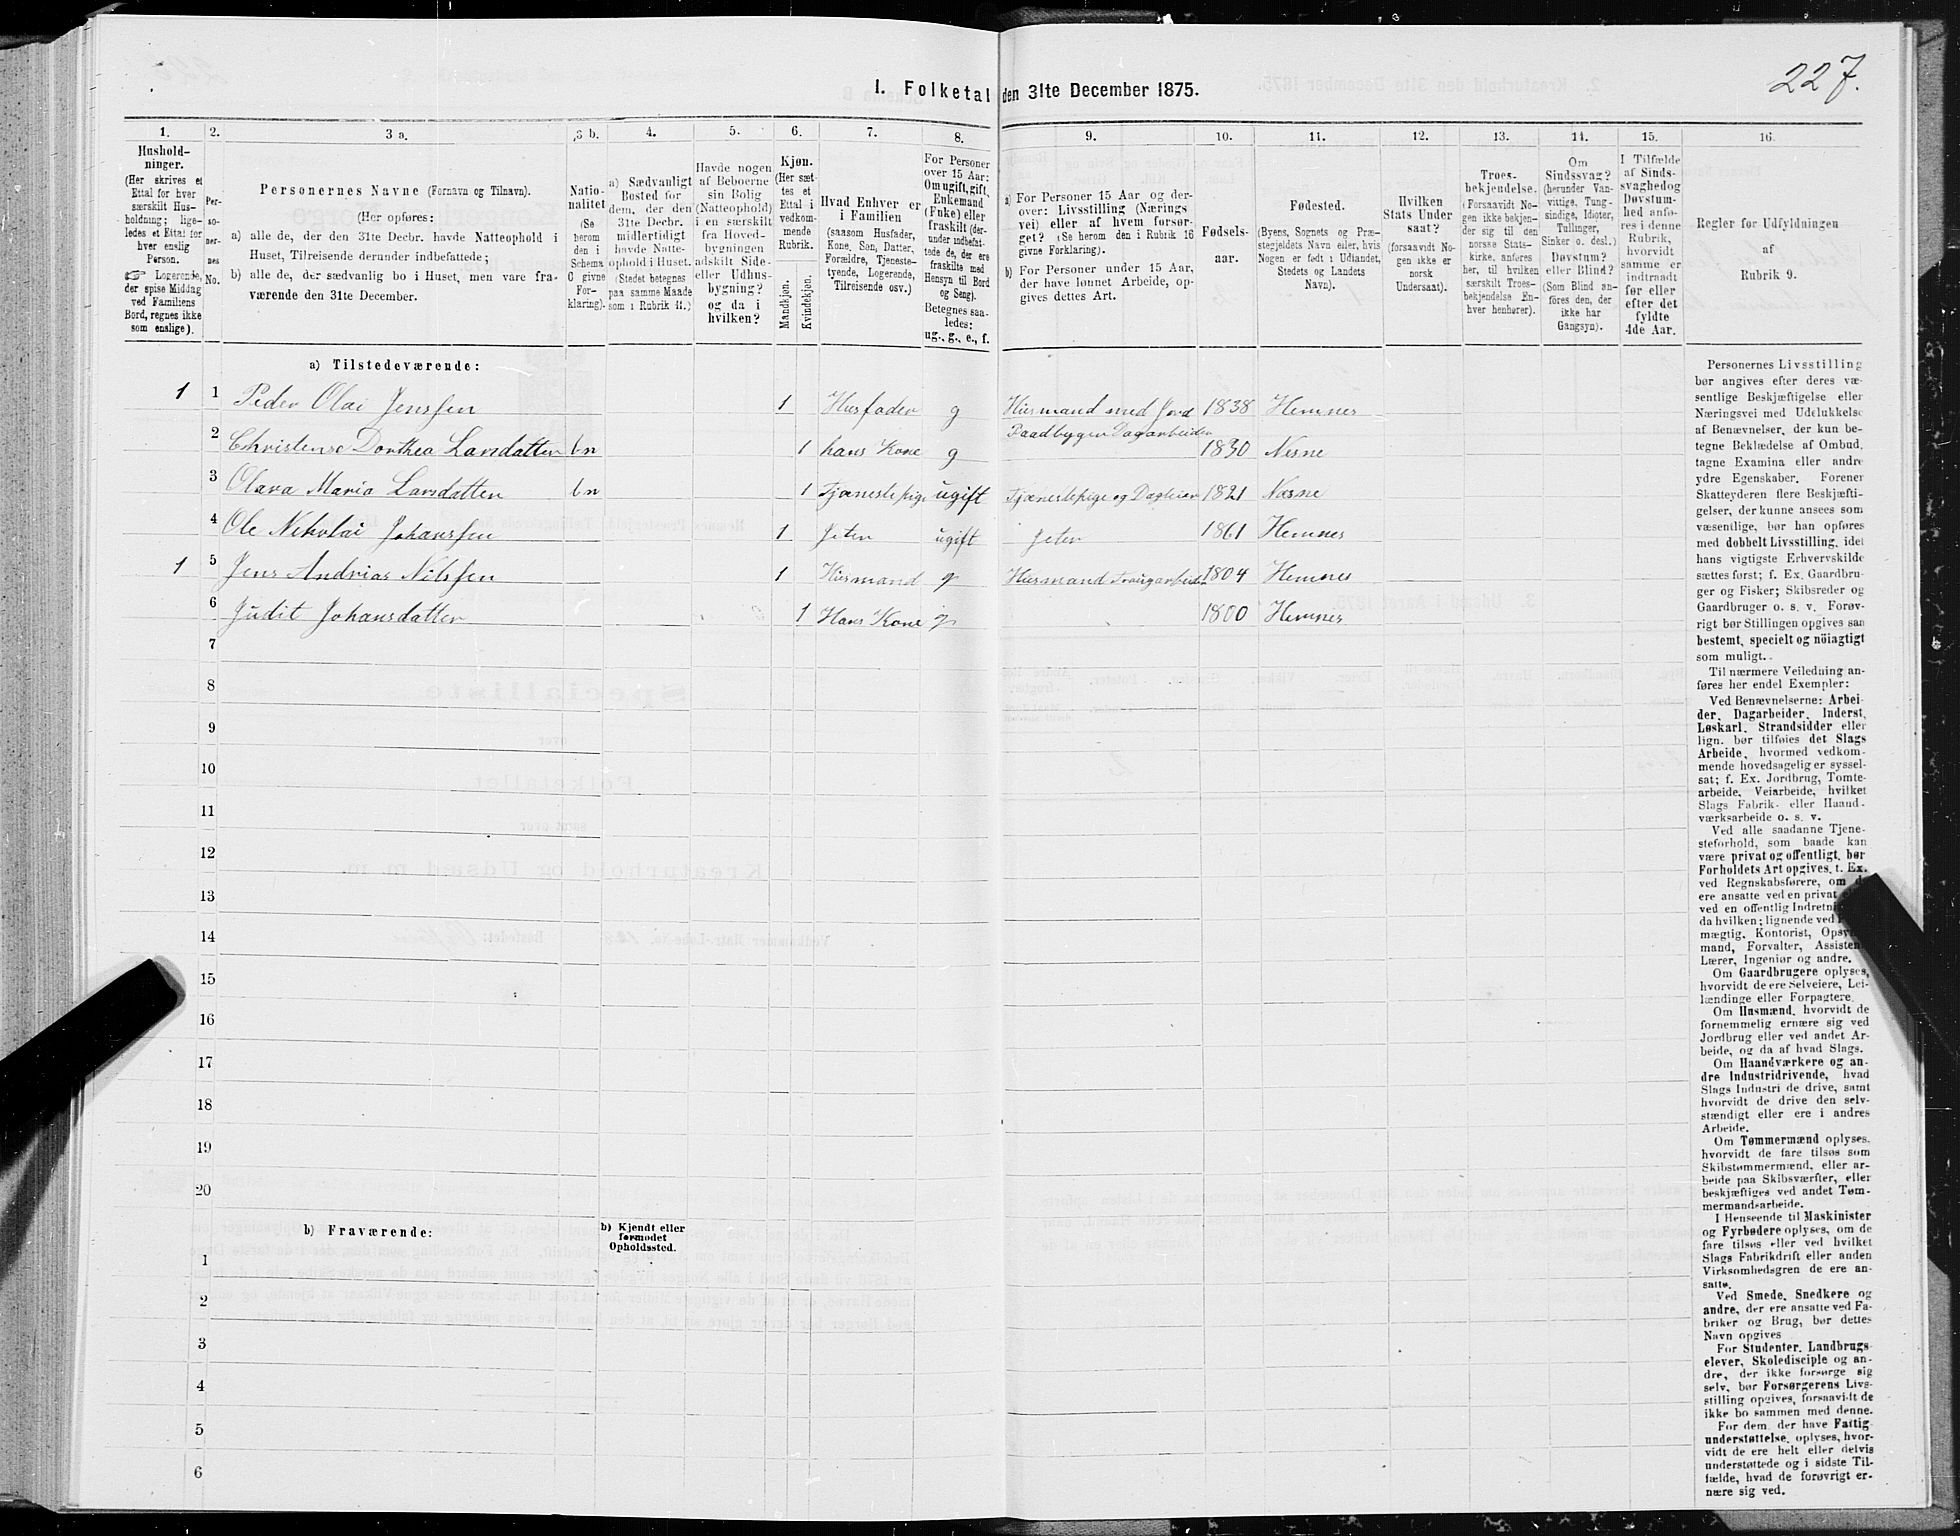 227.
I. Folketal den 31te December 1875.
1. 2. 3 a. 3 b. 4. 5. 6. 7. 8. 9. 10. 11. 12. 13. 14. 15. 16.
Husholdninger.
(Her skrives et
Ettal for hver
særskilt Husholdning; ligeledes et Ettal for
hver enslig
Person.
☞ Logerende,
der spise Middag
ved Familiens
Bord, regnes ikke
som enslige).
Personernes No.
Personernes Navne (Fornavn og Tilnavn).
(Her opføres:
a) alle de, der den 31te Decbr. havde Natteophold i
Huset, Tilreisende derunder indbefattede;
b) alle de, der sædvanlig bo i Huset, men vare fraværende den 31te December.
Nationalitet
(Se
herom
den i
Schema
C givne
Forklaring).
a) Sædvanligt
Bosted for
dem, der den
31te Decbr.
midlertidigt
havde Natteophold i Huset.
(Stedet betegnes
paa samme Maade
som i Rubrik 11.)
Havde nogen
af Beboerne
sin Bolig
(Natteophold)
i en særskilt
fra Hovedbygningen
adskilt Side-
eller Udhusbygning?
og da i
hvilken?
Kjøn.
(Her sættes et
Ettal i
vedkommende
Rubrik.
Mandkjøn.
Kvindekjøn.
Hvad Enhver er
i Familien
(saasom Husfader,
Kone, Søn, Datter,
Forældre, Tjenestetyende, Logerende,
Tilreisende osv.)
For Personer
over 15 Aar:
Om ugift, gift,
Enkemand
(Enke) eller
fraskilt (derunder indbefattede de, der ere
fraskilte med
Hensyn til Bord
og Seng).
Betegnes saaledes:
ug., g., e., f.
a) For Personer 15 Aar og derover: Livsstilling (Næringsvei) eller af hvem forsørget? (Se herom den i Rubrik 16
givne Forklaring).
b) For Personer under 15 Aar,
der have lønnet Arbeide, opgives dettes Art.
Fødselsaar.
Fødested.
(Byens, Sognets og Præstegjeldets Navn eller, hvis
Nogen er født i Udlandet,
Stedets og Landets
Navn).
Hvilken
Stats Undersaat?
(forsaavidt Nogen ikke er
norsk
Undersaat).
Troesbekjendelse.
(Forsaavidt Nogen ikke bekjender sig til den
norske Statskirke, anføres
her, til hvilken
særskilt Troesbekjendelse Enhver henhører).
Om
Sindssvag?
(herunder Vanvittige, Tungsindige, Idioter,
Tullinger,
Sinker o. desl.)
Døvstum?
eller Blind?
(Som Blind anføres den, der
ikke har
Gangsyn).
I Tilfælde
af Sindssvaghed og
Døvstumhed anføres i denne
Rubrik,
hvorvidt
samme er
indtraadt
før eller
efter det
fyldte
4de Aar.
Regler for Udfyldningen
af
Rubrik 9.
a) Tilstedeværende:
1 1 Peder Olai Jenssen 1 Husfader g Husmand med Jord 1838 Hemnes
Baadbygger Dagarbeider
2 Christense Dorthea Larsdatter bn 1 hans Kone g 1830 Nesne
3 Olava Maria Larsdatter bn 1 Tjenestepige ugift Tjenestepige og 1821 Næsne
4 Ole Nikolai Johanssen 1 Jeter ugift Jeter 1861 Hemnes
1 5 Jens Andrias Nilssen 1 Husmand g Husmand 1804 Hemnes
6 Judit Johansdatter 1 Hans Kone g 1800 Hemnes
7
8
9
10
11
12
13
14
15
16
17
18
19
20
b) Fraværende: b) Kjendt eller
formodet
Opholdssted.
1
2
3
4
5
6
Personernes Livsstilling
bør angives efter deres væsentlige Beskjæftigelse eller
Næringsvei med Udelukkelse
af Benævnelser, der kun betegne Beklædelse af Ombud,
tagne Examina eller andre
ydre Egenskaber. Forener
Skatteyderen flere Beskjæftigelser, der kunne ansees som
væsentlige, bør han opføres
med dobbelt Livsstilling, idet
hans vigtigste Erhvervskilde
sættes først; f. Ex. Gaardbruger og Fisker; Skibsreder og
Gaardbruger o. s. v. Forøvrigt bør Stillingen opgives saa
bestemt, specielt og nöiagtigt
som muligt.
Til nærmere Veiledning anføres her endel Exempler:
Ved Benævnelserne: Arbeider, Dagarbeider, Inderst,
Løskarl, Strandsidder eller
lign. bør tilføies det Slags
Arbeide, hvormed vedkommende hovedsagelig er sysselsat; f. Ex. Jordbrug, Tomtearbeide, Veiarbeide, hvilket
Slags Fabrik- eller Haandværksarbeide o. s. v.
Ved alle saadanne Tjenesteforhold, som baade kan
være privat og offentligt, bør
Forholdets Art opgives, f. Ex.
ved Regnskabsførere, om de
ere ansatte ved en privat
ved en offentlig
da hvilken; lignende ved
mægtig, Kontorist,
mand, Forvalter,
Lærer, Ingeniør og andre.
Om Gaardbrugere oplyses,
hvorvidt de ere Selveiere, Leilændinge eller Forpagtere.
Om Husmænd, hvorvidt de
fornemmelig ernære sig ved
Jordbrug eller ved andet Arbeide, og da af hvad Slags.
Om Haandværkere og andre Industridrivende, hvad
Slags Industri de drive, samt
hvorvidt de drive den selvstændigt eller ere i andres
Arbeide.
Om Tømmermænd oplyses,
hvorvidt de fare tilsøs som
Skibstømmermænd, eller arbeide paa Skibsværfter, eller
beskjæftiges ved andet Tømmermandsarbeide.
I Henseende til Maskinister
og Fyrbødere oplyses, om de
fare tilsøs eller ved hvilket
Slags Fabrikdrift eller anden
Virksomhedsgren de ere ansatte.
Ved Smede, Snedkere og
andre, der ere ansatte ved Fabriker og Brug, bør dettes
Navn opgives
For Studenter, Landbrugselever, Skoledisciple og andre, der ikke forsørge sig
selv, bør Forsørgerens Livsstilling opgives, forsaavidt de
ikke bo sammen med denne.
For dem, der have Fattigunderstøttelse, oplyses, hvorvidt de ere helt eller delvis
understøttede og i sidste Tilfælde, hvad de forøvrigt ernære sig ved.